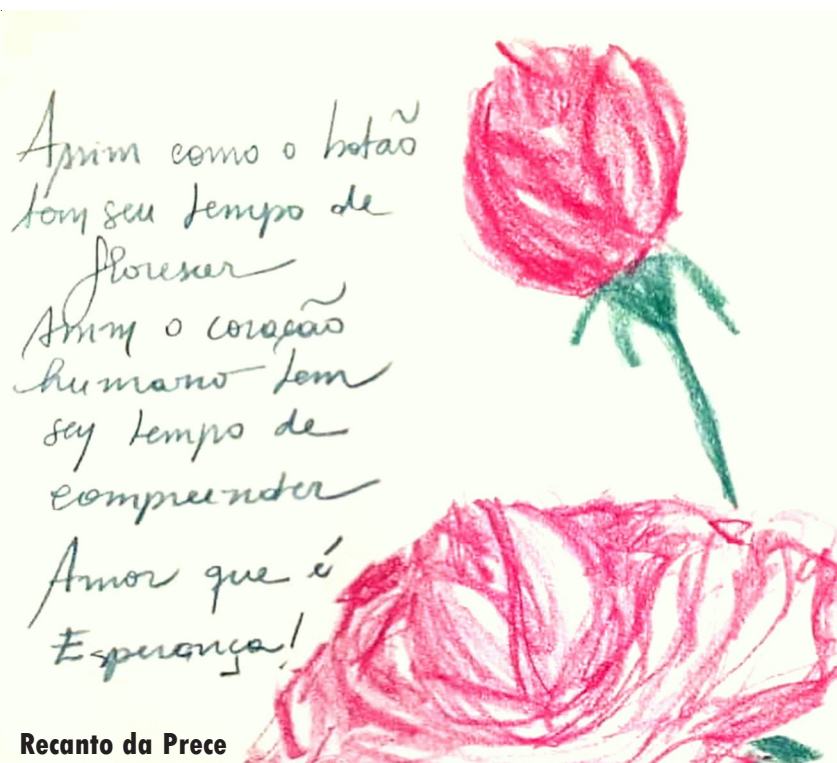 Assim como o botão
tem seu tempo de
florescer
Assim o coração
humano tem
seu tempo de
compreender
Amor que é
Esperança!
Recanto da Prece